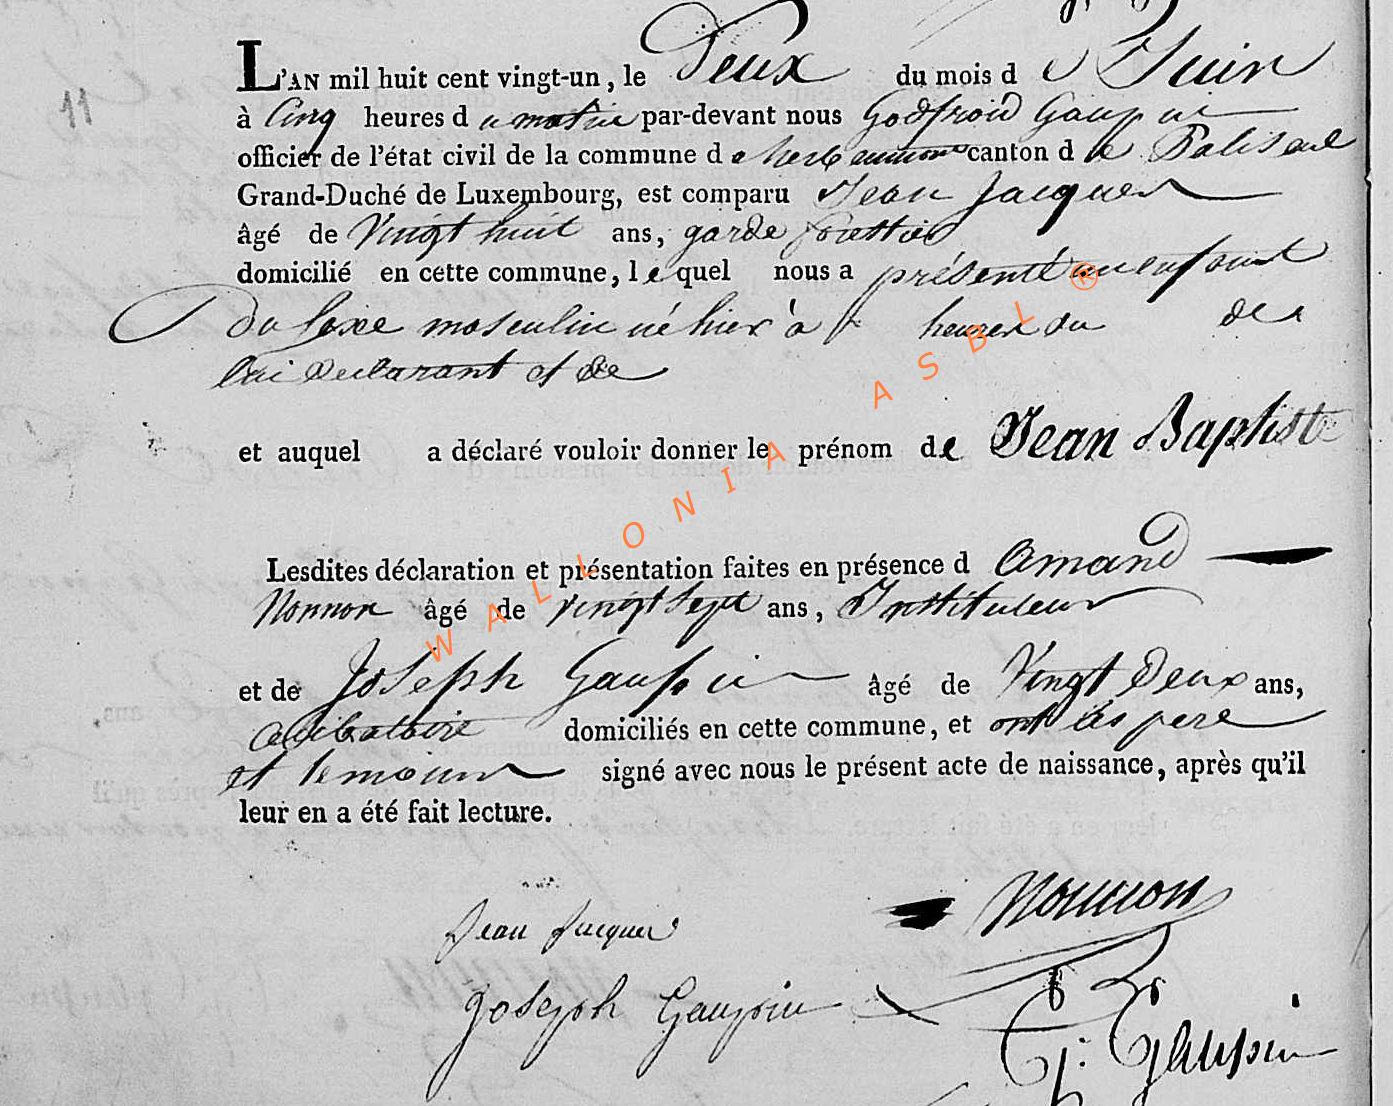 11
L'AN mil huit cent vingt-un, le Deux du mois de Juin
à cinq heures du matin par-devant nous Godfroid Gaupin
officier de l'état civil de la commune de herbeumont canton de Paliseul
Grand-Duché de Luxembourg, est comparu Jean Jacques
âgé de Vingt huit ans, garde forettier
domicilié en cette commune, lequel nous a présenté un enfant
du Sexe masculin né hier à heures du de
lui Declarant et de
et auquel a déclaré vouloir donner le prénom de Jean Baptiste
Lesdites déclaration et présentation faites en présence d Amand
Nonnon âgé de vingt Sept ans, Instituteur
et de Joseph Gaupin âgé de Vingt Deux ans,
Celibataire domiciliés en cette commune, et ont les pere
et temoins signé avec nous le présent acte de naissance, après qu'il
leur en a été fait lecture.
Jean Jacques
Nonnon
Joseph Gaupin
G: Gaupin
WALLONIA ASBL ®